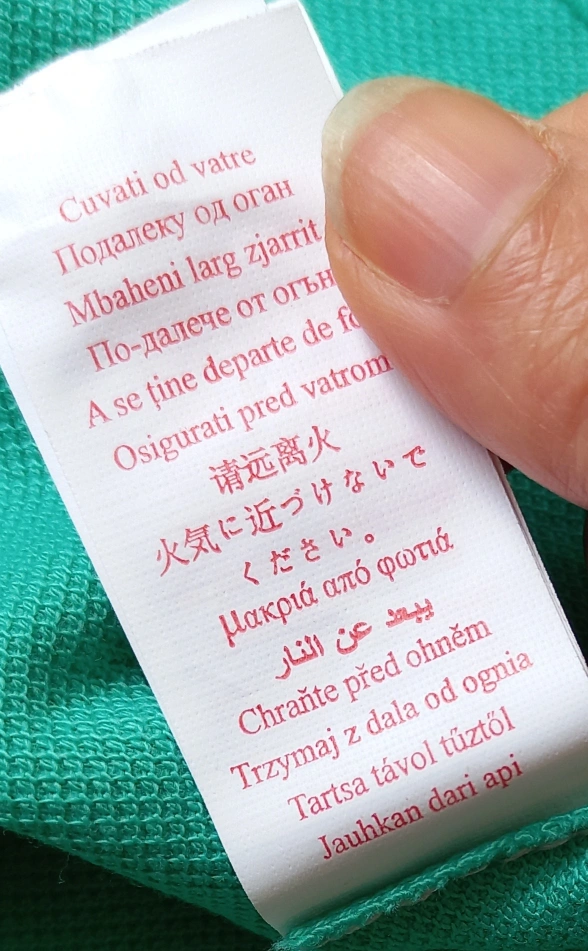 Cuvati od vatre
Подалеку од оган
Mbaheni larg zjarrit
По-далече от
A se ţine departe de
Osigurati pred vatrom
请远离火
火気に近づけないで
ください。
μακριά από φωτιά
يبعد عن النار
Chraňte před ohněm
Trzymaj z dala od ognia
Tartsa távol tűztől
Jauhkan dari api